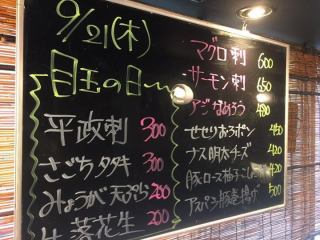 9/21(木)
目玉の日〜
平政刺 300
さごちタタキ 300
みょうが天ぷら 200
生落花生 200
マグロ刺 600
サーモン刺 650
アジなめろう 480
せせりおろポン 450
ナス明太チーズ 420
豚ロース柚子こしょう 420
アスパラ豚竜揚げ 500